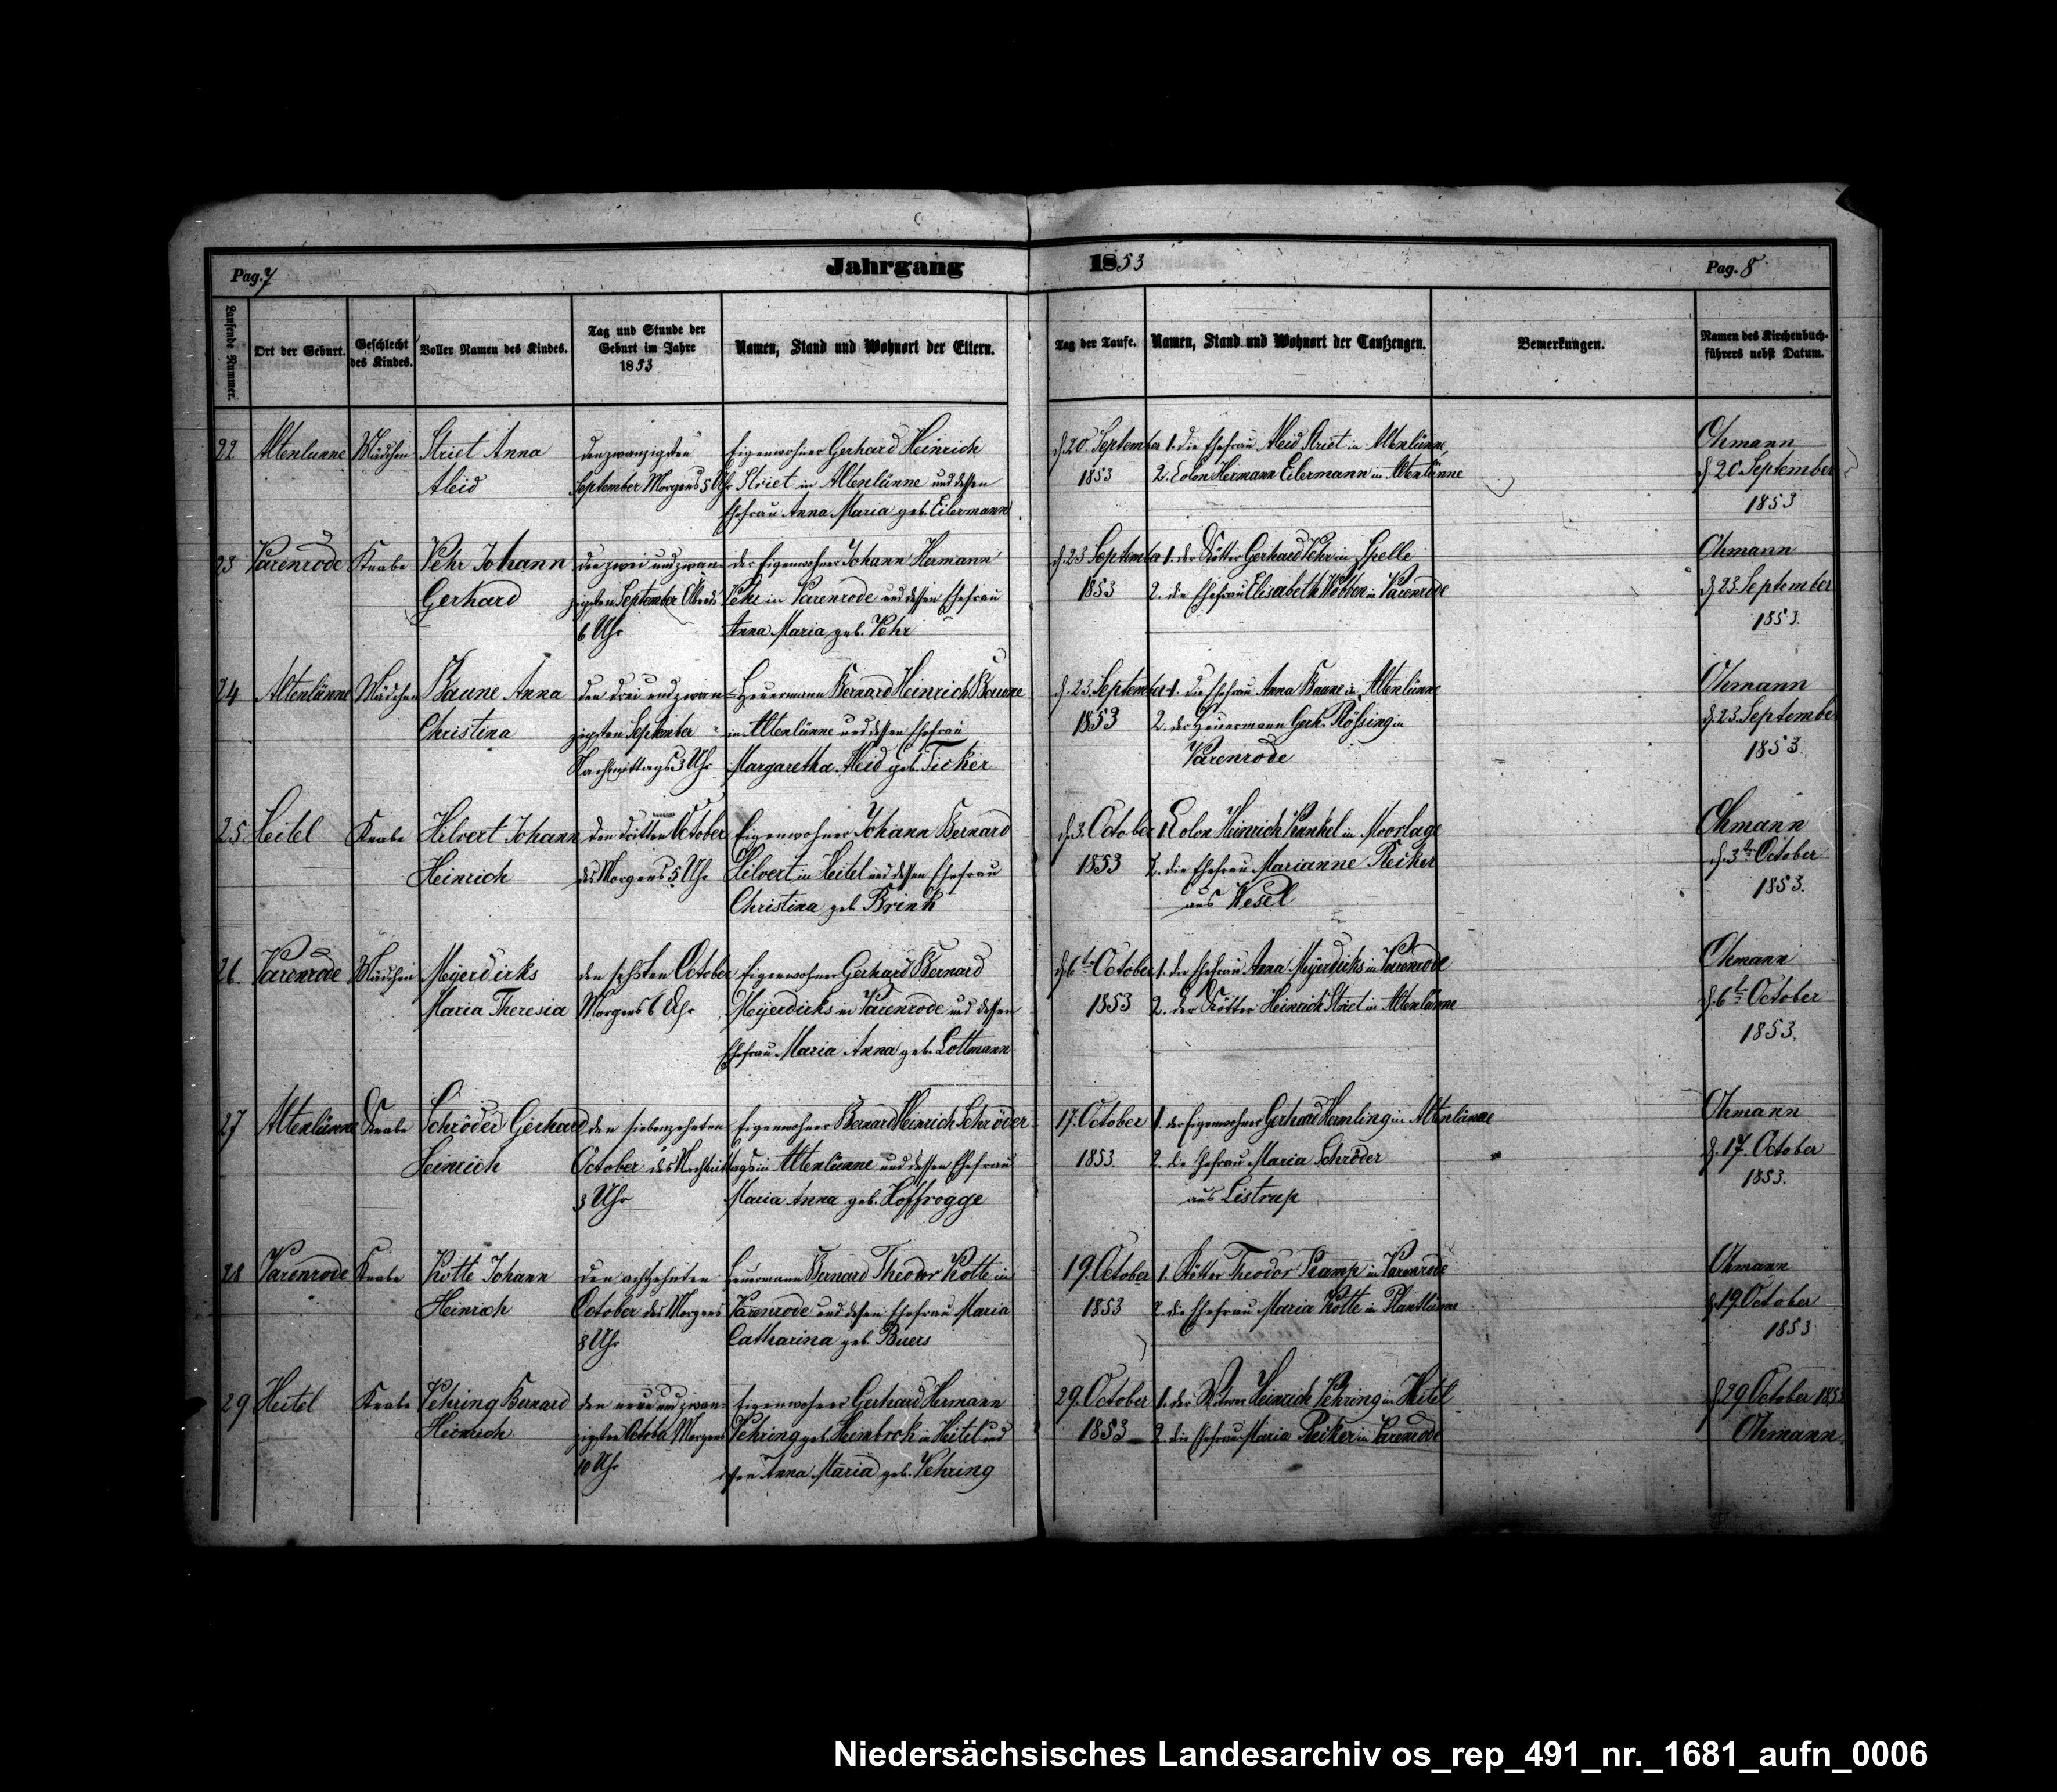 Pag. 7
Jahrgang
1853
Pag. 8
Laufende Nummer.
Ort der Geburt.
Geschlecht
des Kindes.
Voller Namen des Kindes.
Tag und Stunde der
Geburt im Jahre
1853
Namen, Stand und Wohnort der Eltern.
Tag der Taufe.
Namen, Stand und Wohnort der Taufzeugen.
Bemerkungen.
Namen des Kirchenbuch-
führers nebst Datum.
22
Altenlünne
Mädchen
Striet Anna
Aleid
den zwanzigsten
September Morgens 5 Uhr
Eigenwohner Gerhard Heinrich
Striet in Altenlünne und dessen
Ehefrau Anna Maria geb. Eilermann
d. 20. September
1853
1. die Ehefrau Aleid Striet in Altenlünne,
2. Colon Hermann Eilermann in Altenlünne
Ohmann
d. 20 September
1853
23
Varenrode
Knabe
Vehr Johann
Gerhard
den zwei und zwan-
zigsten September Abends
6 Uhr
der Eigenwohner Johann Hermann
Vehr in Varenrode und dessen Ehefrau
Anna Maria geb. Vehr
d. 23 September
1853
1. der Kötter Gerhard Vehr in Spelle
2. die Ehefrau Elisabeth Wobben in Varenrode
Ohmann
d. 23 September
1853.
24
Altenlünne
Mädchen
Baune Anna
Christina
den drei und zwan-
zigsten September
Nachmittags 3 Uhr
Heuermann Bernard Heinrich Baune
in Altenlünne und dessen Ehefrau
Margaretha Aleid geb. Ticker
d. 23. September
1853
1. die Ehefrau Anna Baune in Altenlünne
2. der Heuermann Gerh. Rößing in
Varenrode
Ohmann
d. 23. September
1853.
25
Heitel
Knabe
Hilvert Johann
Heinrich
den dritten October
des Morgens 5 Uhr
Eigenwohner Johann Bernard
Hilvert in Heitel und dessen Ehefrau
Christina geb. Brink
d. 3. October
1853
1. Colon Heinrich Kunkel in Moorlage
2. die Ehefrau Marianne Reiker
aus Wesel
Ohmann
d. 3t October
1853.
26.
Varenrode
Mädchen
Meyerdirks
Maria Theresia
den sechsten October
Morgens 6 Uhr
Eigenwohner Gerhard Bernard
Meyerdirks in Varenrode und dessen
Ehefrau Maria Anna geb. Lottmann
d. 6t October
1853
1. die Ehefrau Anna Meyerdirks in Varenrode
2. der Kötter Heinrich Striet in Altenlünne
Ohmann
d. 6t October
1853.
27
Altenlünne
Knabe
Schröder Gerhard
Heinrich
den siebenzehnten
October des Nachmittags
3 Uhr
Eigenwohner Bernard Heinrich Schröder
in Altenlünne und dessen Ehefrau
Maria Anna geb. Hoffrogge
17. October
1853.
1. der Eigenwohner Gerhard Hermling in Altenlünne
2. die Ehefrau Maria Schröder
aus Listrup
Ohmann
d. 17. October
1853.
28
Varenrode
Knabe
Kotte Johann
Heinrich
den achtzehnten
October des Morgens
8 Uhr
Heuermann Bernard Theodor Kotte in
Varenrode und dessen Ehefrau Maria
Catharina geb. Buers
19. October
1853
1. Kötter Theodor Kamp in Varenrode
2. die Ehefrau Maria Kotte in Plantlünne
Ohmann
d. 19 October
1853
29
Heitel
Knabe
Vehring Bernard
Heinrich
den neun und zwan-
zigsten October Morgens
10 Uhr
Eigenwohner Gerhard Hermann
Vehring geb. Heimbrok in Heitel und
Anna Maria geb. Vehring
29. October
1853
1. der Witwer Heinrich Vehring in Heitel
2. die Ehefrau Maria Reiker in Varenrode
d. 29 October 1853
Ohmann
Niedersächsisches Landesarchiv os_rep_491_nr._1681_aufn_0006